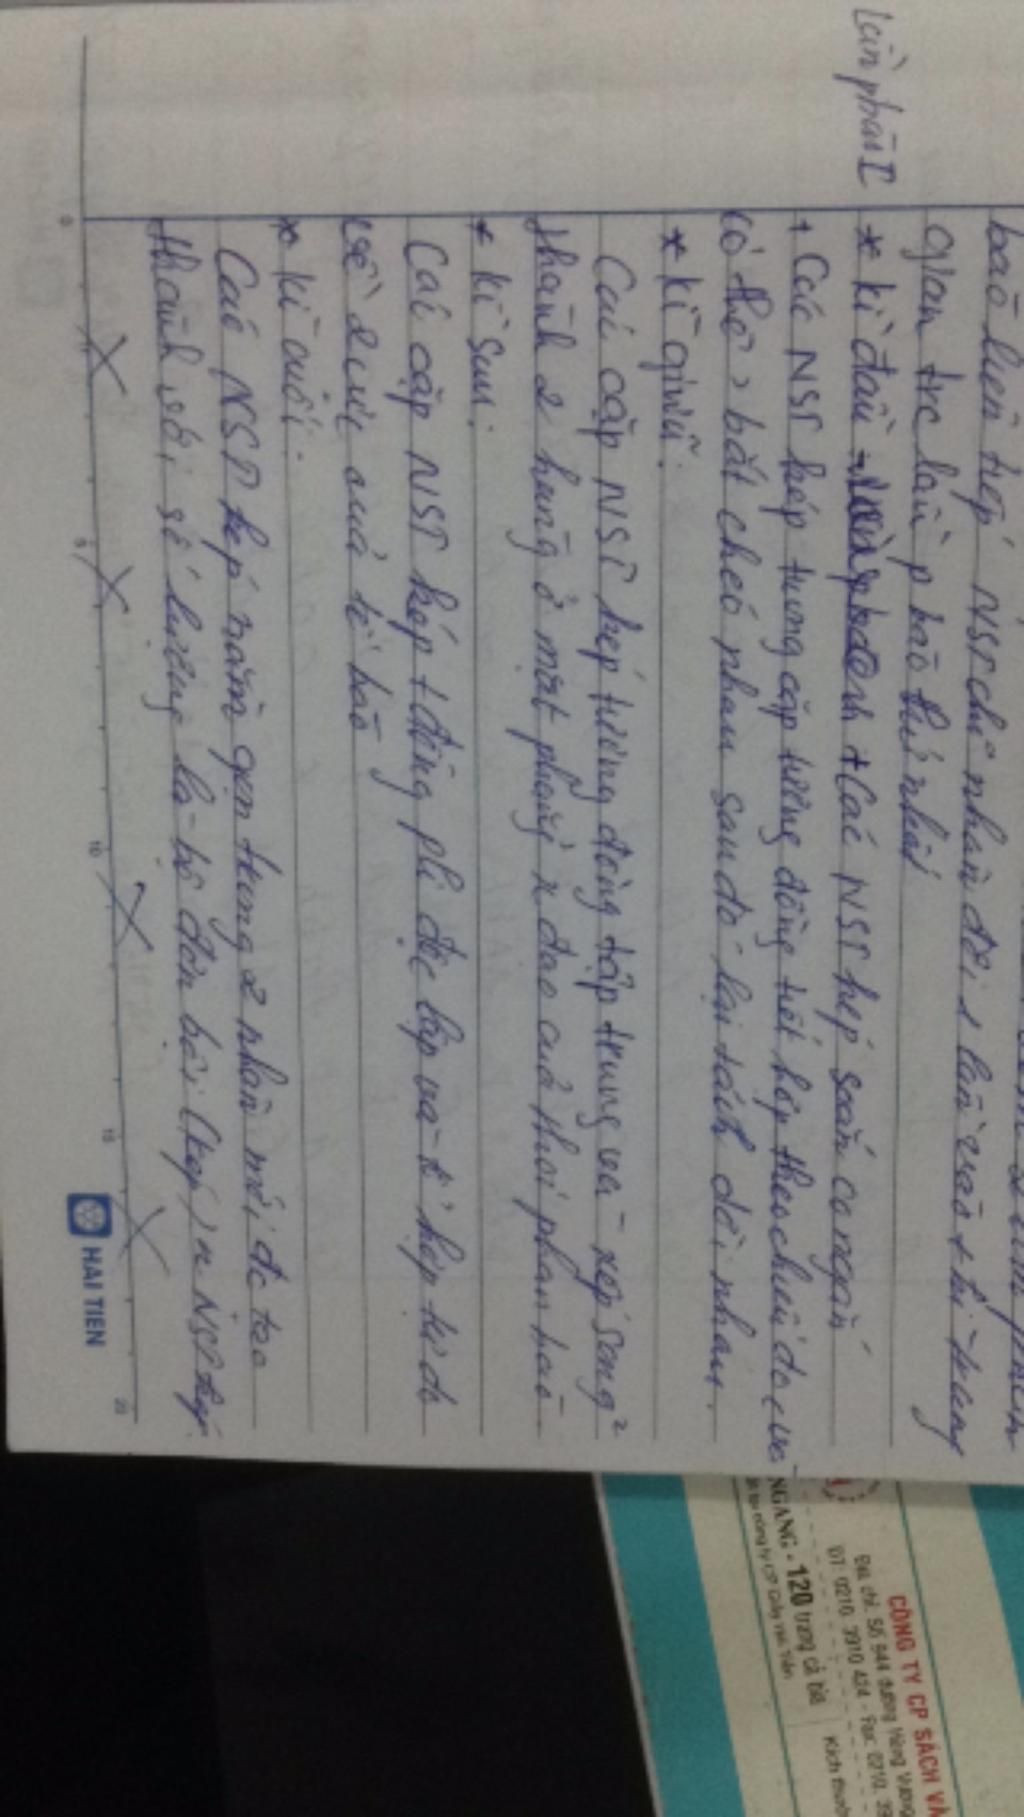 bào liên tiếp NST chỉ nhân đôi 1 lần vào kì trung
gian trc lần p bào thứ nhất
Lần phân I
* kì đầu + Các NST kép xoắn co ngắn
+ Các NST kép tương cặp tương đồng tiết hợp theo chiều dọc và
có thể bắt chéo nhau sau đó lại tách dời nhau.
* Kì giữa:
Các cặp NST kép tương đồng tập trung và xếp song²
thành 2 hàng ở mặt phẳng x đạo của thoi phân bào
* kì sau:
Các cặp NST kép t đồng pli độc lập và t hợp tự do
về 2 cực của tế bào
* kì cuối:
Các NST kép nằm gọn trong 2 nhân mới đc tạo
thành với số lượng là bộ đơn bội (kép) n NST kép
0
5
10
15
20
HẢI TIẾN
CÔNG TY CP SÁCH
Địa chỉ: Số 944 đường Hùng Vương
ĐT: 0210. 3910 424 - Fax: 0210. 39
NGANG - 120 trang cả bìa
Kích thước